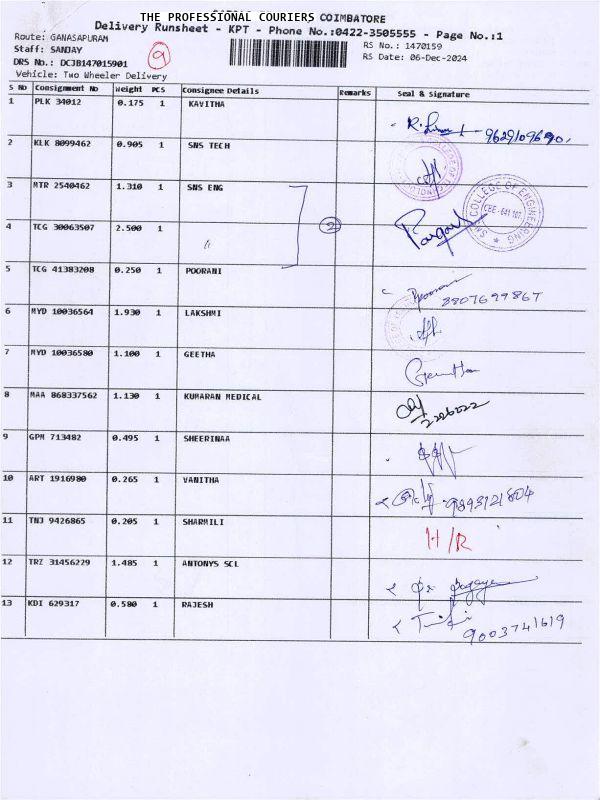 THE PROFESSIONAL COURIERS COIMBATORE
Delivery Runsheet - KPT - Phone No.:0422-3505555 - Page No.:1
Route: GANASAPURAM
RS No.: 1470159
Staff: SANJAY
RS Date: 06-Dec-2024
DRS No.: DCJB147015901
9
Vehicle: Two Wheeler Delivery
S No Consignment No Weight PCS Consignee Details Remarks Seal & Signature
1 PLK 34012 0.175 1 KAVITHA 9629109690
2 KLK 8099462 0.905 1 SNS TECH
3 MTR 2540462 1.310 1 SNS ENG
COLLEGE OF ENGINEERING
4 TCG 30063507 2.500 1 " 2
5 TCG 41383208 0.250 1 POORANI 3807699867
6 MYD 10036564 1.930 1 LAKSHMI
7 MYD 10036580 1.100 1 GEETHA
8 MAA 868337562 1.130 1 KUMARAN MEDICAL 2226222
9 GPM 713482 0.495 1 SHEERINAA
10 ART 1916980 0.265 1 VANITHA 9893121804
11 TNJ 9426865 0.205 1 SHARMILI H/R
12 TRZ 31456229 1.485 1 ANTONYS SCL
13 KDI 629317 0.580 1 RAJESH 9003741619